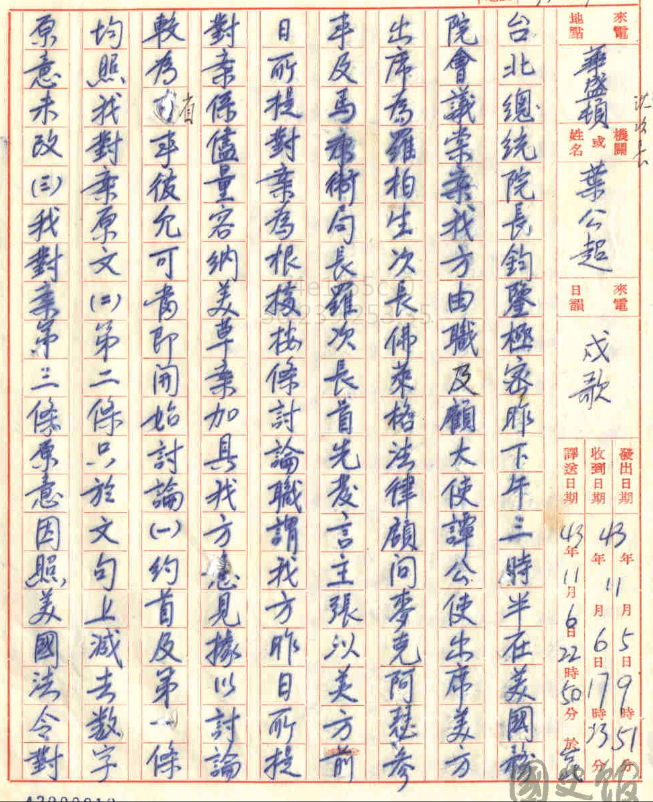 來電地點 華盛頓
機關或姓名 葉公超
來電日韻 戌歌
發出日期 43年11月5日9時51分
收到日期 43年11月6日17時33分
譯送日期 43年11月6日22時50分 於
沈次長
台北總統院長鈞鑒極密昨下午三時半在美國務
院會議棠案我方由職及顧大使譚公使出席美方
出席為羅柏生次長佛萊格法律顧問麥克阿瑟參
事及馬康衛局長羅次長首先發言主張以美方前
日所提對案為根據按條討論職謂我方昨日所提
對案係儘量容納美草案加具我方意見據以討論
較為省事彼允可當即開始討論(一)約首及第一條
均照我對案原文(二)第二條只於文句上減去数字
原意未改(三)我對案第三條原意因照美國法令對
國史館